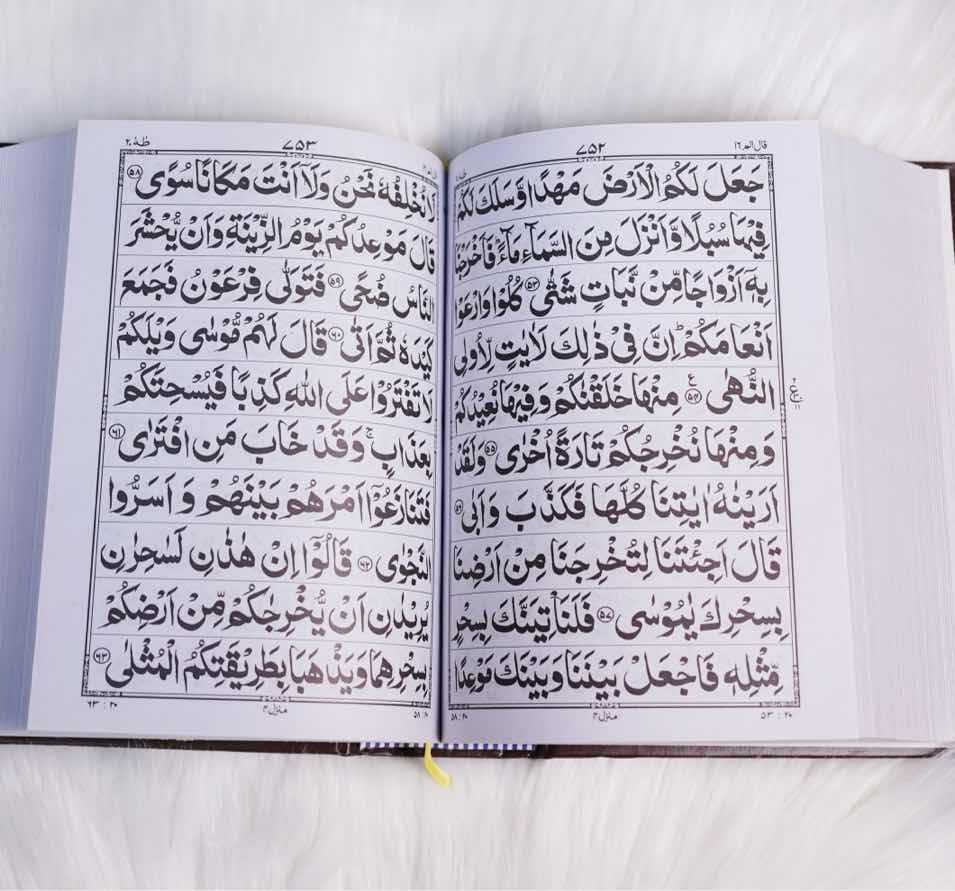 قال الم ١٦
٧٥٢
جَعَلَ لَكُمُ الْاَرْضَ مَهْدًا وَّسَلَكَ لَكُمْ
فِيْهَا سُبُلًا وَّاَنْزَلَ مِنَ السَّمَآءِ مَآءً ؕ فَاَخْرَجْنَا
بِهٖۤ اَزْوَاجًا مِّنْ نَّبَاتٍ شَتّٰى ﴿۵۳﴾ كُلُوْا وَارْعَوْا
اَنْعَامَكُمْ ؕ اِنَّ فِيْ ذٰلِكَ لَاٰيٰتٍ لِّاُولِى
النُّهٰى ﴿۵۴﴾ ع مِنْهَا خَلَقْنٰكُمْ وَفِيْهَا نُعِيْدُكُمْ
وَمِنْهَا نُخْرِجُكُمْ تَارَةً اُخْرٰى ﴿۵۵﴾ وَلَقَدْ
اَرَيْنٰهُ اٰيٰتِنَا كُلَّهَا فَكَذَّبَ وَاَبٰى ﴿۵۶﴾
قَالَ اَجِئْتَنَا لِتُخْرِجَنَا مِنْ اَرْضِنَا
بِسِحْرِكَ يٰمُوْسٰى ﴿۵۷﴾ فَلَنَاْتِيَنَّكَ بِسِحْرٍ
مِّثْلِهٖ فَاجْعَلْ بَيْنَنَا وَبَيْنَكَ مَوْعِدًا
۵۳ : ۲۰
منزل ۴
۵۸ : ۲۰
طٰهٰ ٢٠
٧٥٣
لَّا نُخْلِفُهٗ نَحْنُ وَلَاۤ اَنْتَ مَكَانًا سُوًى ﴿۵۸﴾
قَالَ مَوْعِدُكُمْ يَوْمُ الزِّيْنَةِ وَاَنْ يُّحْشَرَ
النَّاسُ ضُحًى ﴿۵۹﴾ فَتَوَلّٰى فِرْعَوْنُ فَجَمَعَ
كَيْدَهٗ ثُمَّ اَتٰى ﴿۶۰﴾ قَالَ لَهُمْ مُّوْسٰى وَيْلَكُمْ
لَا تَفْتَرُوْا عَلَى اللّٰهِ كَذِبًا فَيُسْحِتَكُمْ
بِعَذَابٍ ۚ وَقَدْ خَابَ مَنِ افْتَرٰى ﴿۶۱﴾
فَتَنَازَعُوْۤا اَمْرَهُمْ بَيْنَهُمْ وَاَسَرُّوا
النَّجْوٰى ﴿۶۲﴾ قَالُوْۤا اِنْ هٰذٰنِ لَسٰحِرٰنِ
يُرِيْدٰنِ اَنْ يُّخْرِجٰكُمْ مِّنْ اَرْضِكُمْ
بِسِحْرِهِمَا وَيَذْهَبَا بِطَرِيْقَتِكُمُ الْمُثْلٰى ﴿۶۳﴾
منزل ۴
۶۳ : ۲۰